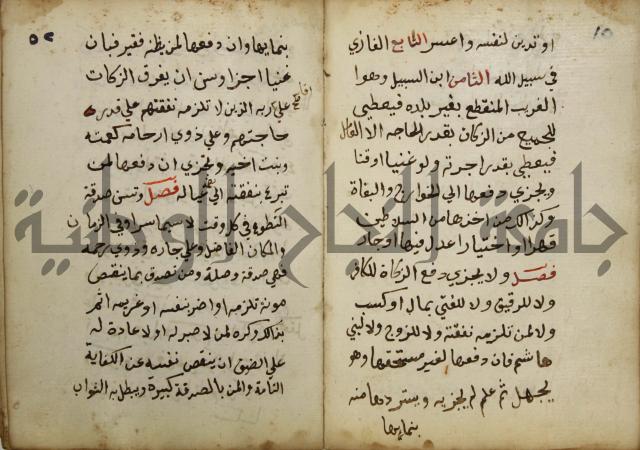 او تدين لنفسه واعسر السابع الغازي
في سبيل الله الثامن ابن السبيل وهوا
الغريب المنقطع بغير بلده فيعطى
للجميع من الزكاة بقدر الحاجه الا العامل
فيعطي بقدر اجرته ولو غنيا اوقنا
ويجزي دفعها الي الخوارج والبغاة
وكذالك من اخذها من السلاطين
قهرا او اختيارا عدل فيها اوجار
فصل ولا يجزي دفع الزكاة للكافر
ولا للرقيق ولا للغني بمال او كسب
ولا لمن تلزمه نفقته ولا للزوج ولا لبني
هاشم فان دفعها لغير مستحقها وهو
يجهل ثم علم لم يجزيه ويسترد منه
بنمايها
٥٢
بنمايها وان دفعها لمن يظنه فقير فبان
غنيا اجزا وسن ان يفرق الزكات
علي اقاربه الذين لا تلزمه نفقتهم علي قدر
حاجتهم وعلي ذوي ارحامه كعمته
وبنت اخيه وتجزي ان دفعها لمن
تبرع بنفقته الي عياله فصل وتسن صدقة
التطوع في كل وقت لا سيما سرا وفي الزمان
والمكان الفاضل وعلي جاره وذوي رحمه
فهي صدقة وصلة ومن تصدق بما ينقص
مونة تلزمه او اضر بنفسه او غريمه اثم
بذالك وكره لمن لا صبر له او لا عادة له
علي الضيق ان ينقص نفسه عن الكفاية
التامة والمن بالصدقة كبيرة ويبطل به الثواب
جامعة النجاح الوطنية